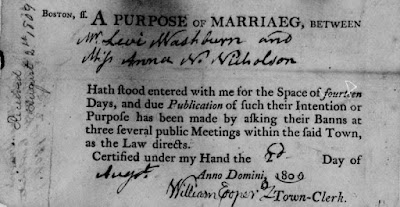 Boston, ff. A PURPOSE OF MARRIAEG, BETWEEN
Mr. Levi Washburn and
Miss Anna N. Nicholson
Hath stood entered with me for the Space of fourteen
Days, and due Publication of such their Intention or
Purpose has been made by asking their Banns at
three several public Meetings within the said Town,
as the Law directs.
Certified under my Hand the 2d Day of
Augst. Anno Domini, 1809
William Cooper Town-Clerk.
Received August 2d, 1809